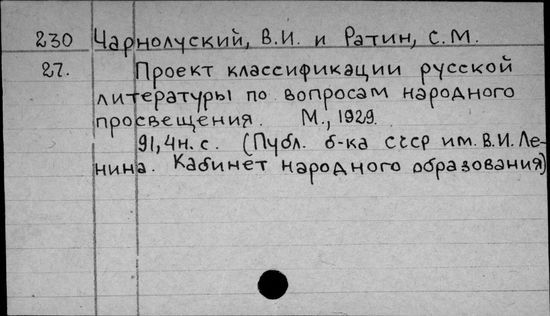 230 Чарнолуский, В.И. и Ратин, С.М.
27. Проект классификации русской
литературы по вопросам народного
просвещения. М., 1929.
91,4н. с. (Публ. б-ка СССР им. В.И. Ле-
нина. Кабинет народного образования)